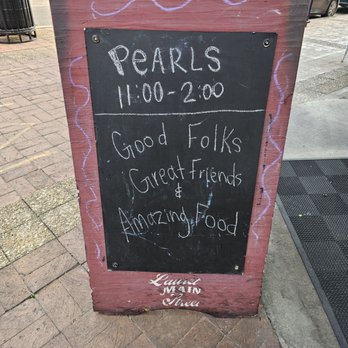 PEARLS
11:00-2:00
Good Folks
Great Friends
&
Amazing Food
Laurel
MAIN
Street